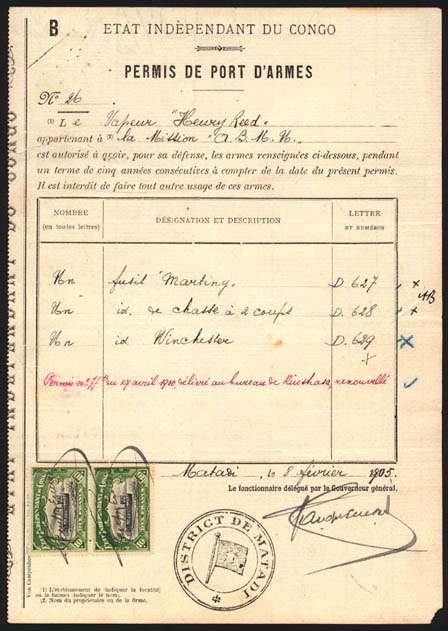 B ETAT INDÉPENDANT DU CONGO
PERMIS DE PORT D'ARMES
No 26
(1) Le Vapeur "Henry Reed"
appartenant à (2) la Mission "A.B.M.U."
est autorisé à avoir, pour sa défense, les armes renseignées ci-dessous, pendant
un terme de cinq années consécutives à compter de la date du présent permis.
Il est interdit de faire tout autre usage de ces armes.
NOMBRE (en toutes lettres) DÉSIGNATION ET DESCRIPTION LETTRE ET NUMÉROS
Un fusil "Martiny" D. 627
AB
Un id. de chasse à 2 coups D. 628
Un id Winchester D. 629
Permis no 277 du 27 avril 1900, délivré au bureau de Kinshasa, renouvellé
Matadi, le 8 février 1905.
Le fonctionnaire délégué par le Gouverneur général,
ETAT INDÉPENDANT DU CONGO
DIX FRANCS
10
ETAT INDÉPENDANT DU CONGO
DIX FRANCS
10
DISTRICT DE MATADI
(1) L'établissement de (indiquer la localité)
ou le bateau (indiquer le nom).
(2) Nom du propriétaire ou de la firme.